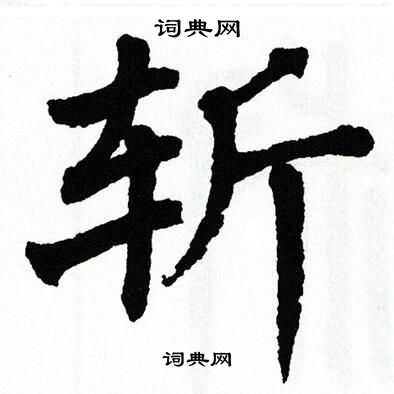 词典网
斩
词典网